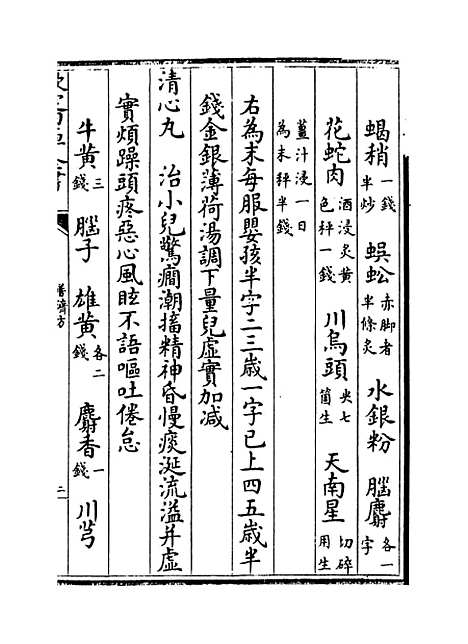 蝎稍一錢半炒 蜈蚣赤脚者半條炙 水銀粉 腦麝各一字
花蛇肉酒浸炙黄色秤一錢 川烏頭尖七箇生 天南星切碎用生
薑汁浸一日為末秤半錢
右為末每服嬰孩半字二三歲一字已上四五歲半
錢金銀薄荷湯調下量兒虛實加减
清心丸 治小兒驚癎潮搐精神昏慢痰涎流溢并虛
實煩躁頭疼惡心風眩不語嘔吐倦怠
牛黄三錢 腦子 雄黄各二錢 麝香一錢 川芎
普濟方
二